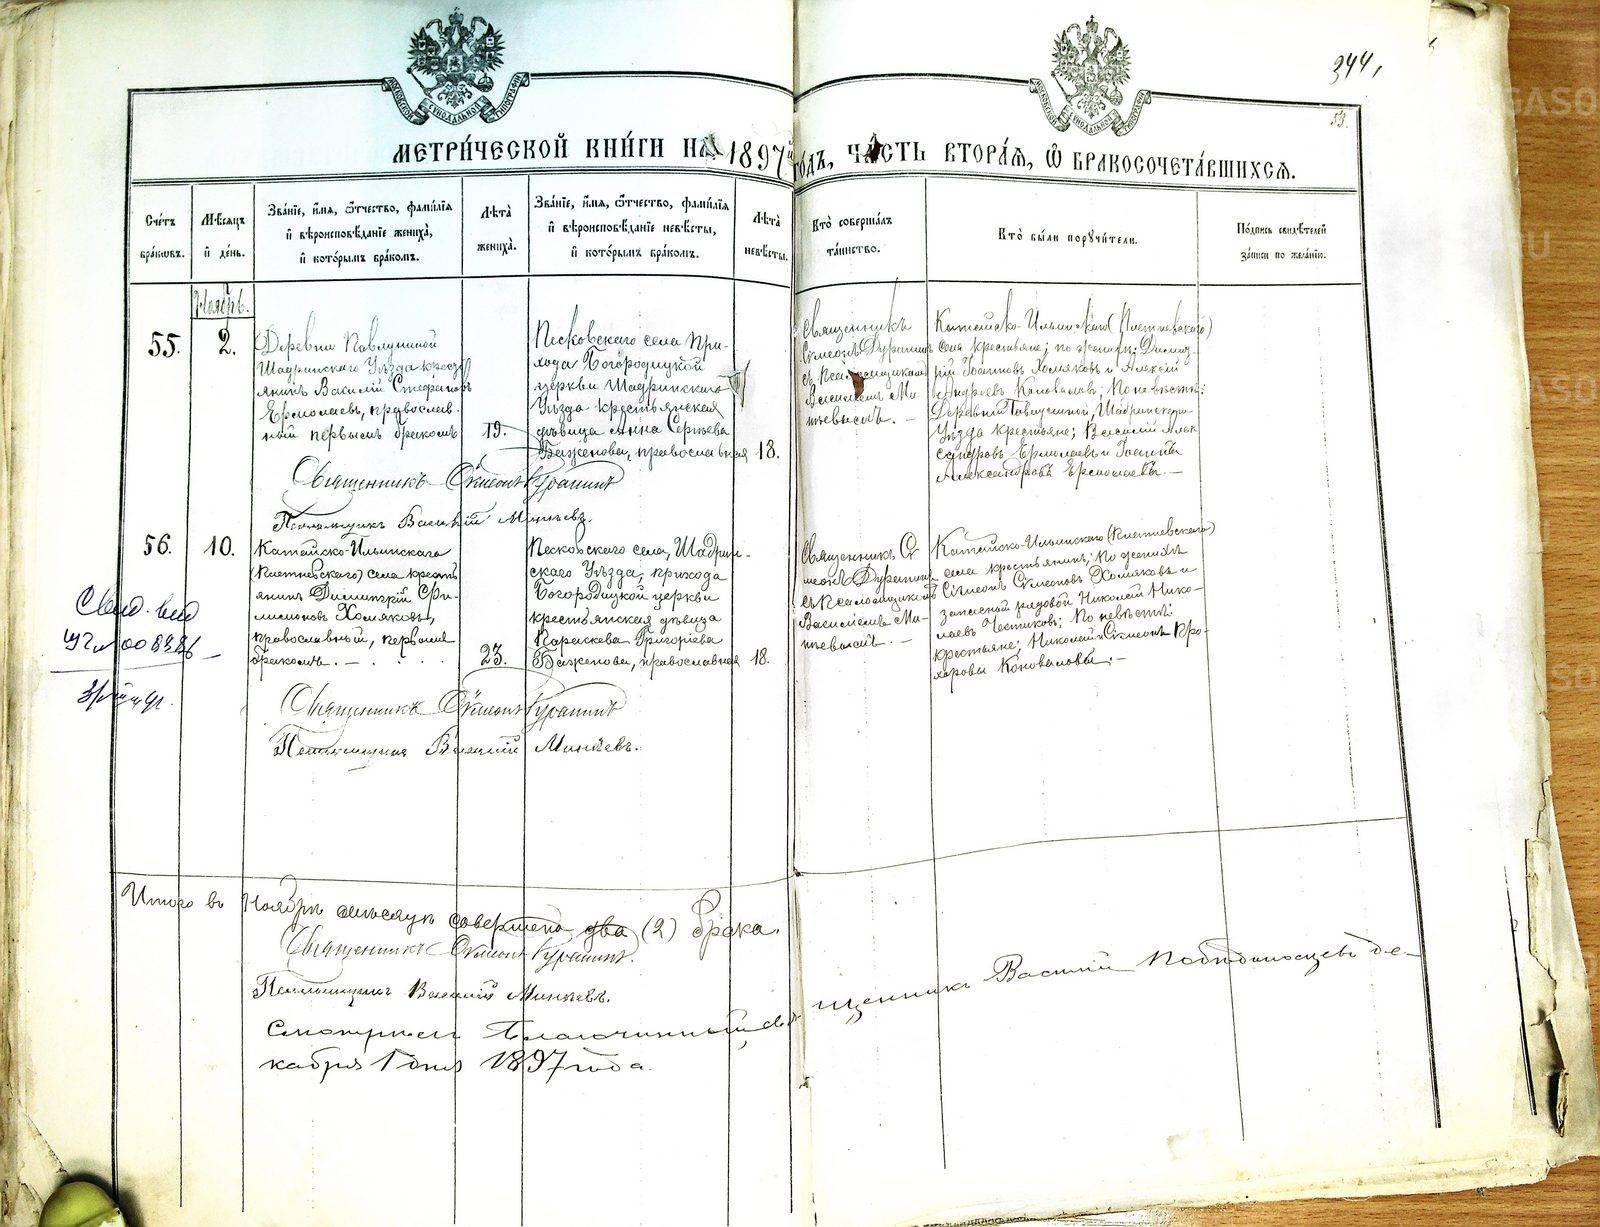 344,
53.
МОСКОВСКОЙ СѴНОДАЛЬНОЙ ТИПОГРАФІИ
МОСКОВСКОЙ СѴНОДАЛЬНОЙ ТИПОГРАФІИ
МЕТРИ́ЧЕСКОЙ КНИ́ГИ НА 1897й ГО́ДЪ, ЧА́СТЬ ВТОРА́Я, Ѿ БРАКОСОЧЕТА́ВШИХСЯ.
Сче́тъ бра́ковъ.
Мѣ́сяцъ и́ де́нь.
Зва́нїе, и́мя, ѻ́тчество, фами́лїя и́ вѣроисповѣ́данїе жениха̀, и́ кото́рымъ бра́комъ.
Лѣ́та жениха̀.
Зва́нїе, и́мя, ѻ́тчество, фами́лїя и́ вѣроисповѣ́данїе невѣ́сты, и́ кото́рымъ бра́комъ.
Лѣ́та невѣ́сты.
Кто̀ соверша́лъ та́инство.
Кто̀ бы́ли поручи́тели.
По́дпись свидѣ́телей за́писи по жела́нїю.
Ноябрь.
55.
2.
Деревни Павлушиной
Шадринскаго Уѣзда кресть
янинъ Василій Стефановъ
Ермолаевъ, православ-
ный первымъ бракомъ
19.
Песковскаго села при-
хода Богородицкой
церкви Шадринскаго
Уѣзда крестьянская
дѣвица Анна Сергѣева
Баженова, православная
18.
Священникъ
Сѵмеонъ
съ Псаломщикомъ
Василіемъ Ми-
нѣевымъ. —
Катайско-Ильинскаго (Плетневскаго)
села крестьяне; по женихѣ: Димит-
рій Іоанновъ Хомяковъ и Алексій
Андреевъ Коновалов; По невѣстѣ:
Деревни Павлушиной, Шадринскаго
Уѣзда крестьяне; Василій Алек-
сандровъ Ермолаевъ и Іоаннъ
Александровъ Ермолаевы. —
Священникъ Сѵмеонъ
Псаломщикъ Василій Минѣевъ.
56.
10.
Катайско-Ильинскаго
(Плетневскаго) села кресть
янинъ Димитрій Фи-
лимоновъ Хомяковъ,
православный, первымъ
бракомъ. —
23.
Песковскаго села, Шадрин-
скаго Уѣзда, прихода
Богородицкой церкви
крестьянская дѣвица
Параскева Григоріева
Баженова, православная
18.
Священникъ Сѵ
меонъ
съ Псаломщикомъ
Василіемъ Ми-
нѣевымъ. —
Катайско-Ильинскаго (Плетневскаго)
села крестьянинъ; По женихѣ
Сѵмеонъ Сѵмеоновъ Хомяковъ и
запасный рядовой Николай Нико-
лаевъ Честиковъ; По невѣстѣ:
крестьяне; Николай и Сѵмеонъ Про-
хоровы Коноваловы; —
Свид. выд
008986
Священникъ Сѵмеонъ
Псаломщикъ Василій Минѣевъ.
Итого въ Ноябрѣ мѣсяцѣ совершено два (2) брака.
Священникъ Сѵмеонъ
Псаломщикъ Василій Минѣевъ.
Смотрѣлъ Благочинный, свя щенникъ Василій Побѣдоносцевъ де-
кабря 1 дня 1897 года.